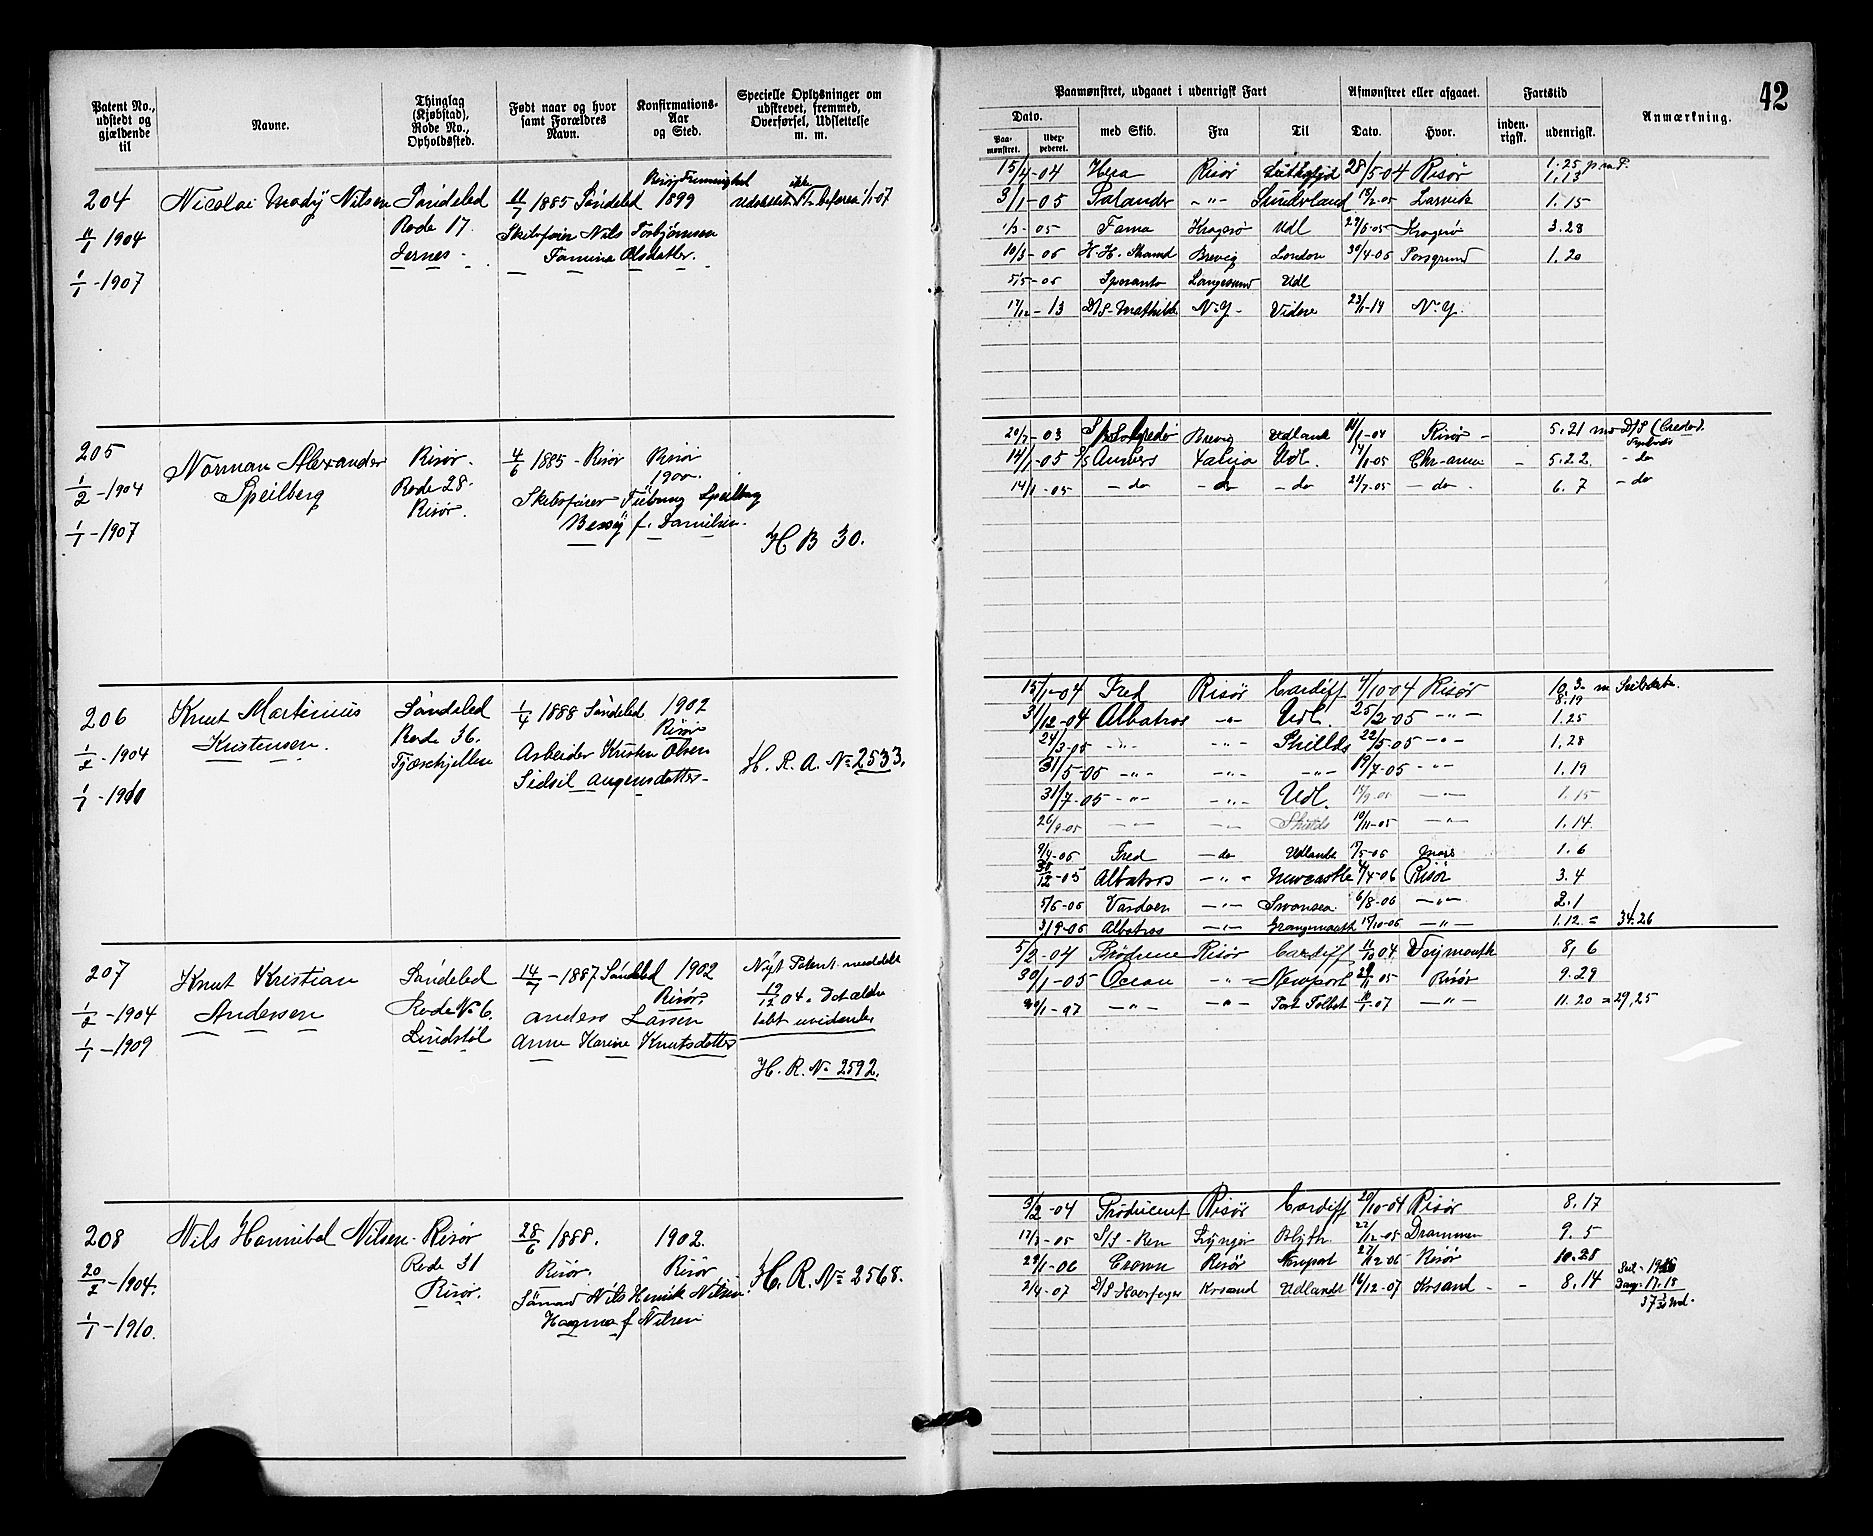 42
Patent No., udstedt og gjældende til
Navne.
Thinglag (Kjøbstad), Rode No., Opholdssted.
Født naar og hvor samt Forældres Navn.
Konfirmations-Aar og Sted.
Specielle Oplysninger om udskrevet, fremmed, Overførsel, Udslettelse m. m.
Paamønstret, udgaaet i udenrigsk Fart
Afmønstret eller afgaaet.
Fartstid
Anmærkning.
Dato.
Paa-mønstret.
med Skib.
Fra
Til
Dato.
Hvor.
inden-rigsk.
udenrigsk.
204
11/1 1904
1/1-1907
Nicolai Mody Nilsen
Søndeled
Rode 17.
11/7 1885 Søndeled
Skibsfører Nils Torbjørnsen
Olsdatter.
1899
15/4-04 Hera Risør 28/5-04 Risør 1.25
1.13
3/1-05 Palander -"- Sunderland 18/2-05 Larvik 1.15
1/3-05 Fama Kragerø Udl 29/6-05 Kragerø 3.28
10/3-06 Brevig London 30/4-06 Porsgrund 1.20
5/5-06 Speranto Langesund Udl
17/12-13 D/S-Mathilde N.Y- Videre 23/1-14 N.Y.
205
1/2-1904
1/1-1907
Norman Alexander
Speilberg
Risør.
Rode 28.
Risør.
4/6 1885-Risør
Risør
1900.
Skibsfører Speilberg
f. Danielsen.
H B 30.
20/7-03 Brevig Udland 11/1-04 Risør- 5.21
14/1-05 Udl. 14/1-05 Chr-ania - 5.22. - do
14/1-05 - do - do - do 21/7-05 - do - 6.7 - do
206
1/2-1904
1/1-1910
Knut Martinius
Kristensen.
Søndeled
Rode 36.
1/4 1888 Søndeled
Arbeider Kristen Olsen
Sidsil Augensdatter-
1902
Risør
H. R. A. No 2533.
15/1-04 Fred Risør Cardiff 4/10-04 Risør 10.3
8.19
31/12-04 Albatros -"- Udl. 25/2-05 -"- 1.25
24/3-05 -"- -"- Shillds 22/5-05 -"- 1.28
31/5-05 -"- -"- -"- 19/7-05 -"- 1.19
31/7-05 -"- -"- Udl. -"- 1.15
26/9-05 -"- -"- Shields 10/11-05 -"- 1.14.
9/4-06 Fred -do Udlandt 15/5-06 1.6
30/12-05 Albatros -"- Newcastle 4/4-06 Risør 3.4
5/6-06 Vardøen -"- Swansea 6/8-06 -"- 2.1
3/9-06 Albatros -"- Grangemouth 15/10-06 -"- 1.12.= 34.26
207
1/2-1904
1/1-1909
Knut Kristian
Andersen
Søndeled
Rode No 6.
Lindstøl
14/1-1887 Søndeled
Anders Larsen
Anne Karine Knutsdatter
1902
Risør.
Nyt Patent meddelt
19/12 04. Det ældre
tabt uvidende
H. R. No 2592.
5/2-04 Brødrene Risør Cardiff 11/10 04. Weymouth 8,6
30/1-05 Ocean -"- Newport Risør 9.29
-"- -"- Port Talbot -07 -"- 11.20 = 29,25
208
20/2-1904.
1/1-1910.
Nils Hannibal Nilsen-
Risør
Rode 31
Risør.
28/6 1888.
Risør.
Sømand Nils Henrik Nilsen.
Hagma f Nilsen
1902.
Risør
H. R. No 2568.
3/2-04 Producent Risør Cardiff 20/10-04 Risør 8.17
17/3-05 S/S-Ren Lyngør Blyth. 22/12-05 Drammen 9.5
29/1-06 Crown Risør Newport 27/12-06 Risør 10.28
2/4-07 Krsand Udlandt 16/12-07 Krsand - 8.14